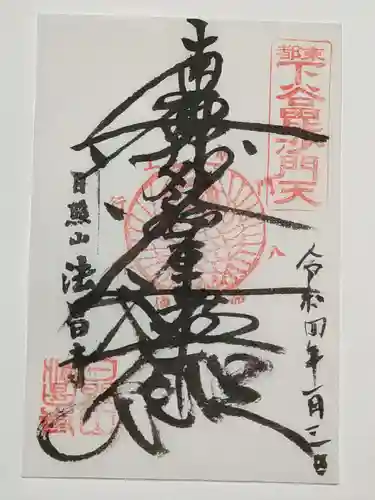 東都
下谷毘沙門天
令和四年一月三日
南無妙法蓮華経
日照山 法昌寺